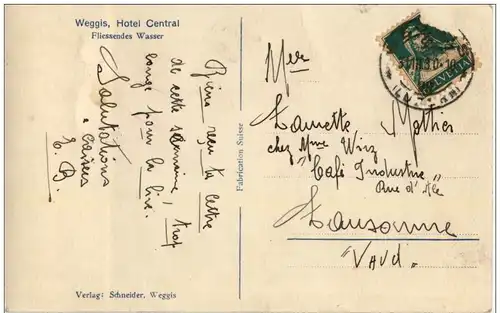 Weggis, Hotel Central
Fliessendes Wasser
Bien reçu ta lettre
de cette semaine, trop
longue pour la lire.
Salutations
E. B.
Fabrication Suisse
Verlag: Schneider, Weggis
HELVETIA
Mlle
chez Mme Wirz
"Café Industrie"
Rue d'Ale
Lausanne
"Vaud"